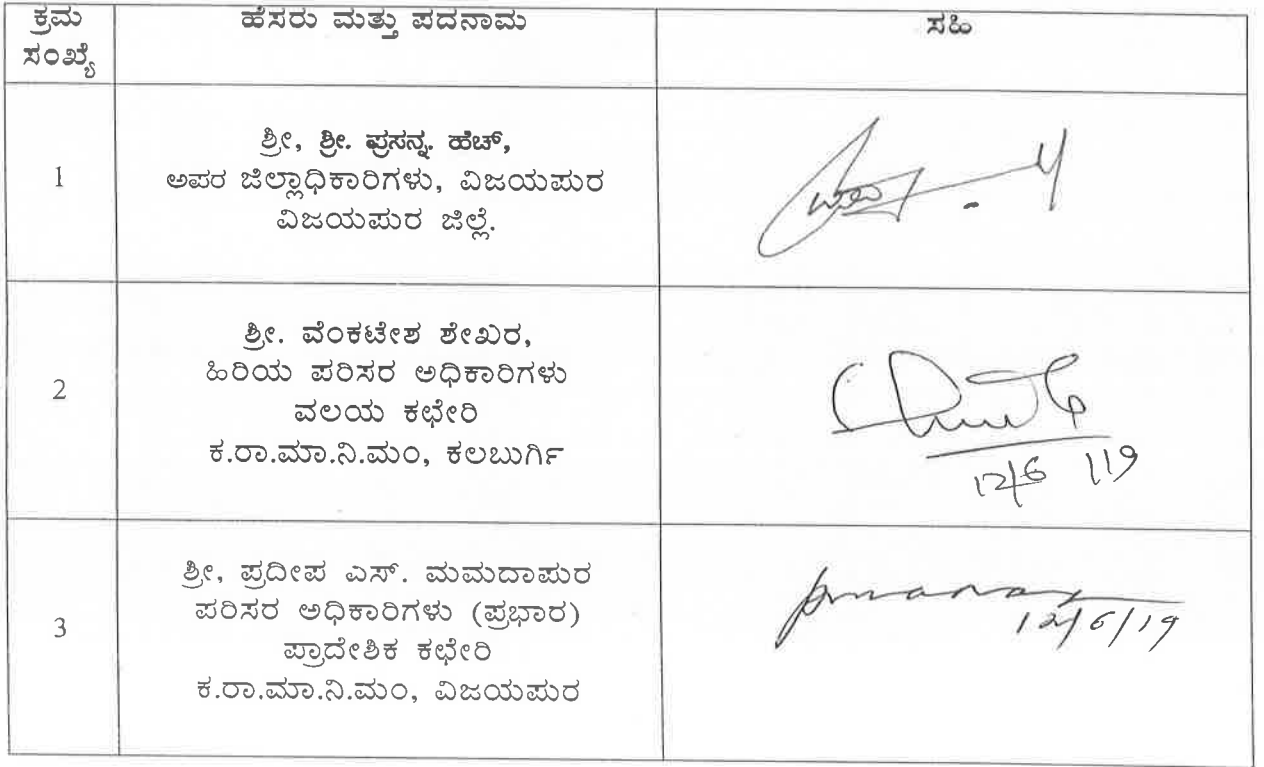 ಕ್ರಮ ಸಂಖ್ಯೆ ಹೆಸರು ಮತ್ತು ಪದನಾಮ ಸಹಿ
1
ಶ್ರೀ, ಶ್ರೀ. ಪ್ರಸನ್ನ. ಹೆಚ್,
ಅಪರ ಜಿಲ್ಲಾಧಿಕಾರಿಗಳು, ವಿಜಯಪುರ
ವಿಜಯಪುರ ಜಿಲ್ಲೆ.
2
ಶ್ರೀ. ವೆಂಕಟೇಶ ಶೇಖರ,
ಹಿರಿಯ ಪರಿಸರ ಅಧಿಕಾರಿಗಳು
ವಲಯ ಕಛೇರಿ
ಕ.ರಾ.ಮಾ.ನಿ.ಮಂ, ಕಲಬುರ್ಗಿ
12/6/19
3
ಶ್ರೀ, ಪ್ರದೀಪ ಎಸ್. ಮಮದಾಪುರ
ಪರಿಸರ ಅಧಿಕಾರಿಗಳು (ಪ್ರಭಾರ)
ಪ್ರಾದೇಶಿಕ ಕಛೇರಿ
ಕ.ರಾ.ಮಾ.ನಿ.ಮಂ, ವಿಜಯಪುರ
12/6/19